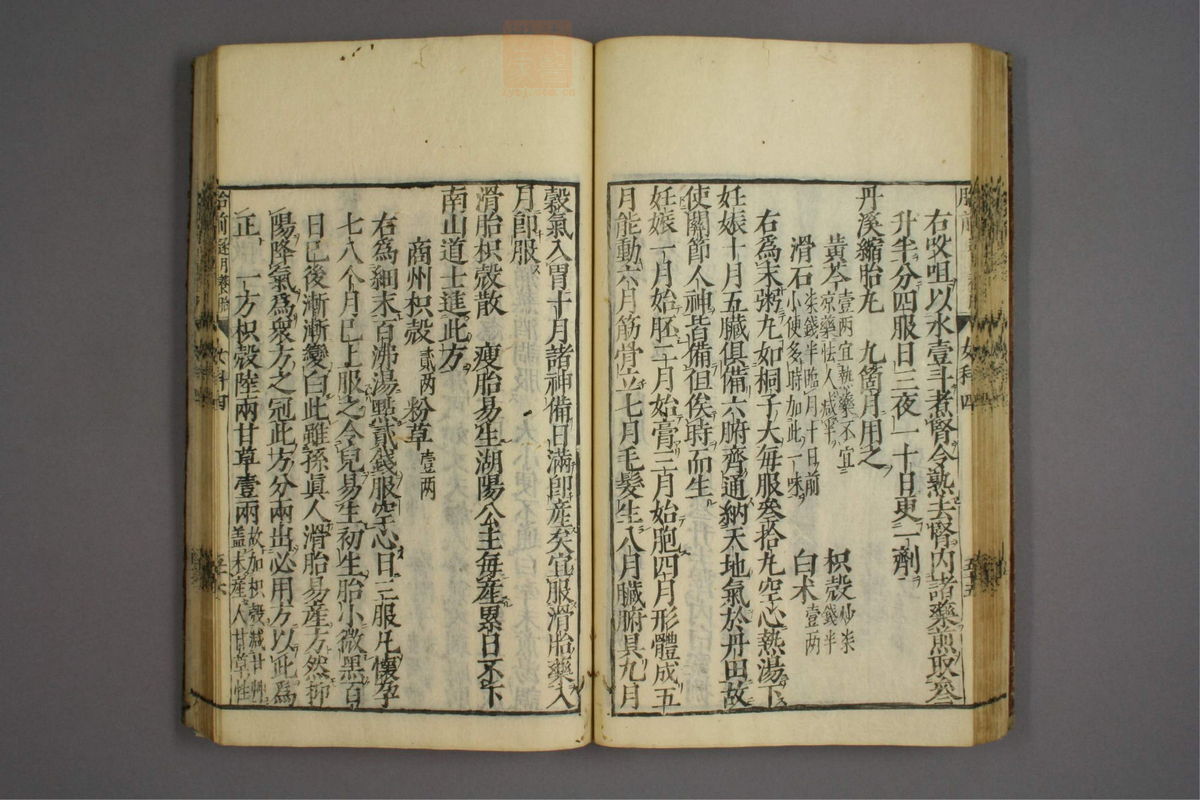 右㕮咀以水壹斗煮腎令熟去腎內諸藥煎取叁
升半分四服日三夜一十日更一劑
丹溪縮胎丸 九箇月用之
黃芩壹兩宜熱藥不宜凉藥怯人減半 枳殼炒柒錢半
滑石柒錢半臨月十日前小便多時加此一味 白朮壹兩
右爲末粥丸如桐子大每服叁拾丸空心熱湯下
妊娠十月五臟俱備六腑齊通納天地氣於丹田故
使關節人神皆備但俟時而生
妊娠一月始胚二月始膏三月始胞四月形體成五
月能動六月筋骨立七月毛髮生八月臟腑具九月
穀氣入胃十月諸神備日滿卽產矣宜服滑胎藥入
月卽服
滑胎枳殼散 瘦胎易生湖陽公主每產累日不下
南山道士進此方
商州枳殼貳兩 粉草壹兩
右爲細末百沸湯點貳錢服空心日三服凡懷孕
七八个月已上服之令兒易生初生胎小微黑百
日已後漸漸變白此雖孫眞人滑胎易產方然抑
陽降氣爲衆方之冠此方分兩出必用方以此爲
正 一方枳殼陸兩甘草壹兩故加枳殼減甘草蓋未產人甘草性
胎前
女科四
五十五
胎前逐月養胎
女科四
五十六